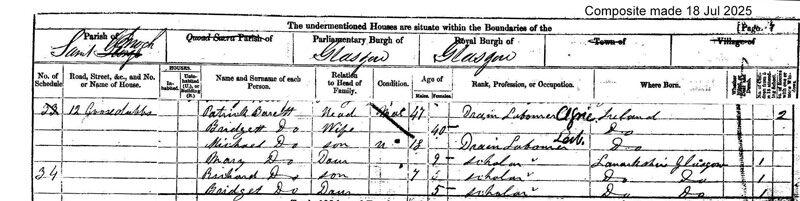 Composite made 18 Jul 2025
The undermentioned Houses are situate within the Boundaries of the [Page 7
Parish of Quoad Sacra Parish of Parliamentary Burgh of Royal Burgh of Town of Village of
Saint Enoch Glasgow Glasgow
No. of Schedule Road, Street, &c., and No. or Name of House. HOUSES. Inhabited Uninhabited (U.), or Building (B.) Name and Surname of each Person. Relation to Head of Family. Condition. Age of Males. Females. Rank, Profession, or Occupation. Where Born.
33 12 Goosedubbs Patrick Barett Head Mar 47 Drain Labourer Agric Ireland 2
Bridgett Do Wife 40 Do
Michael Do son 18 Drain Labourer Lab. Do
Mary Do Daur 9 scholar Lanarkshire Glasgow 1
34 Richard Do son 7 scholar Do Do 1
Bridget Do Daur 5 scholar Do Do 1